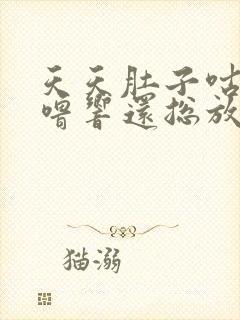 天天肚子咕
噜響還総放
猫溺